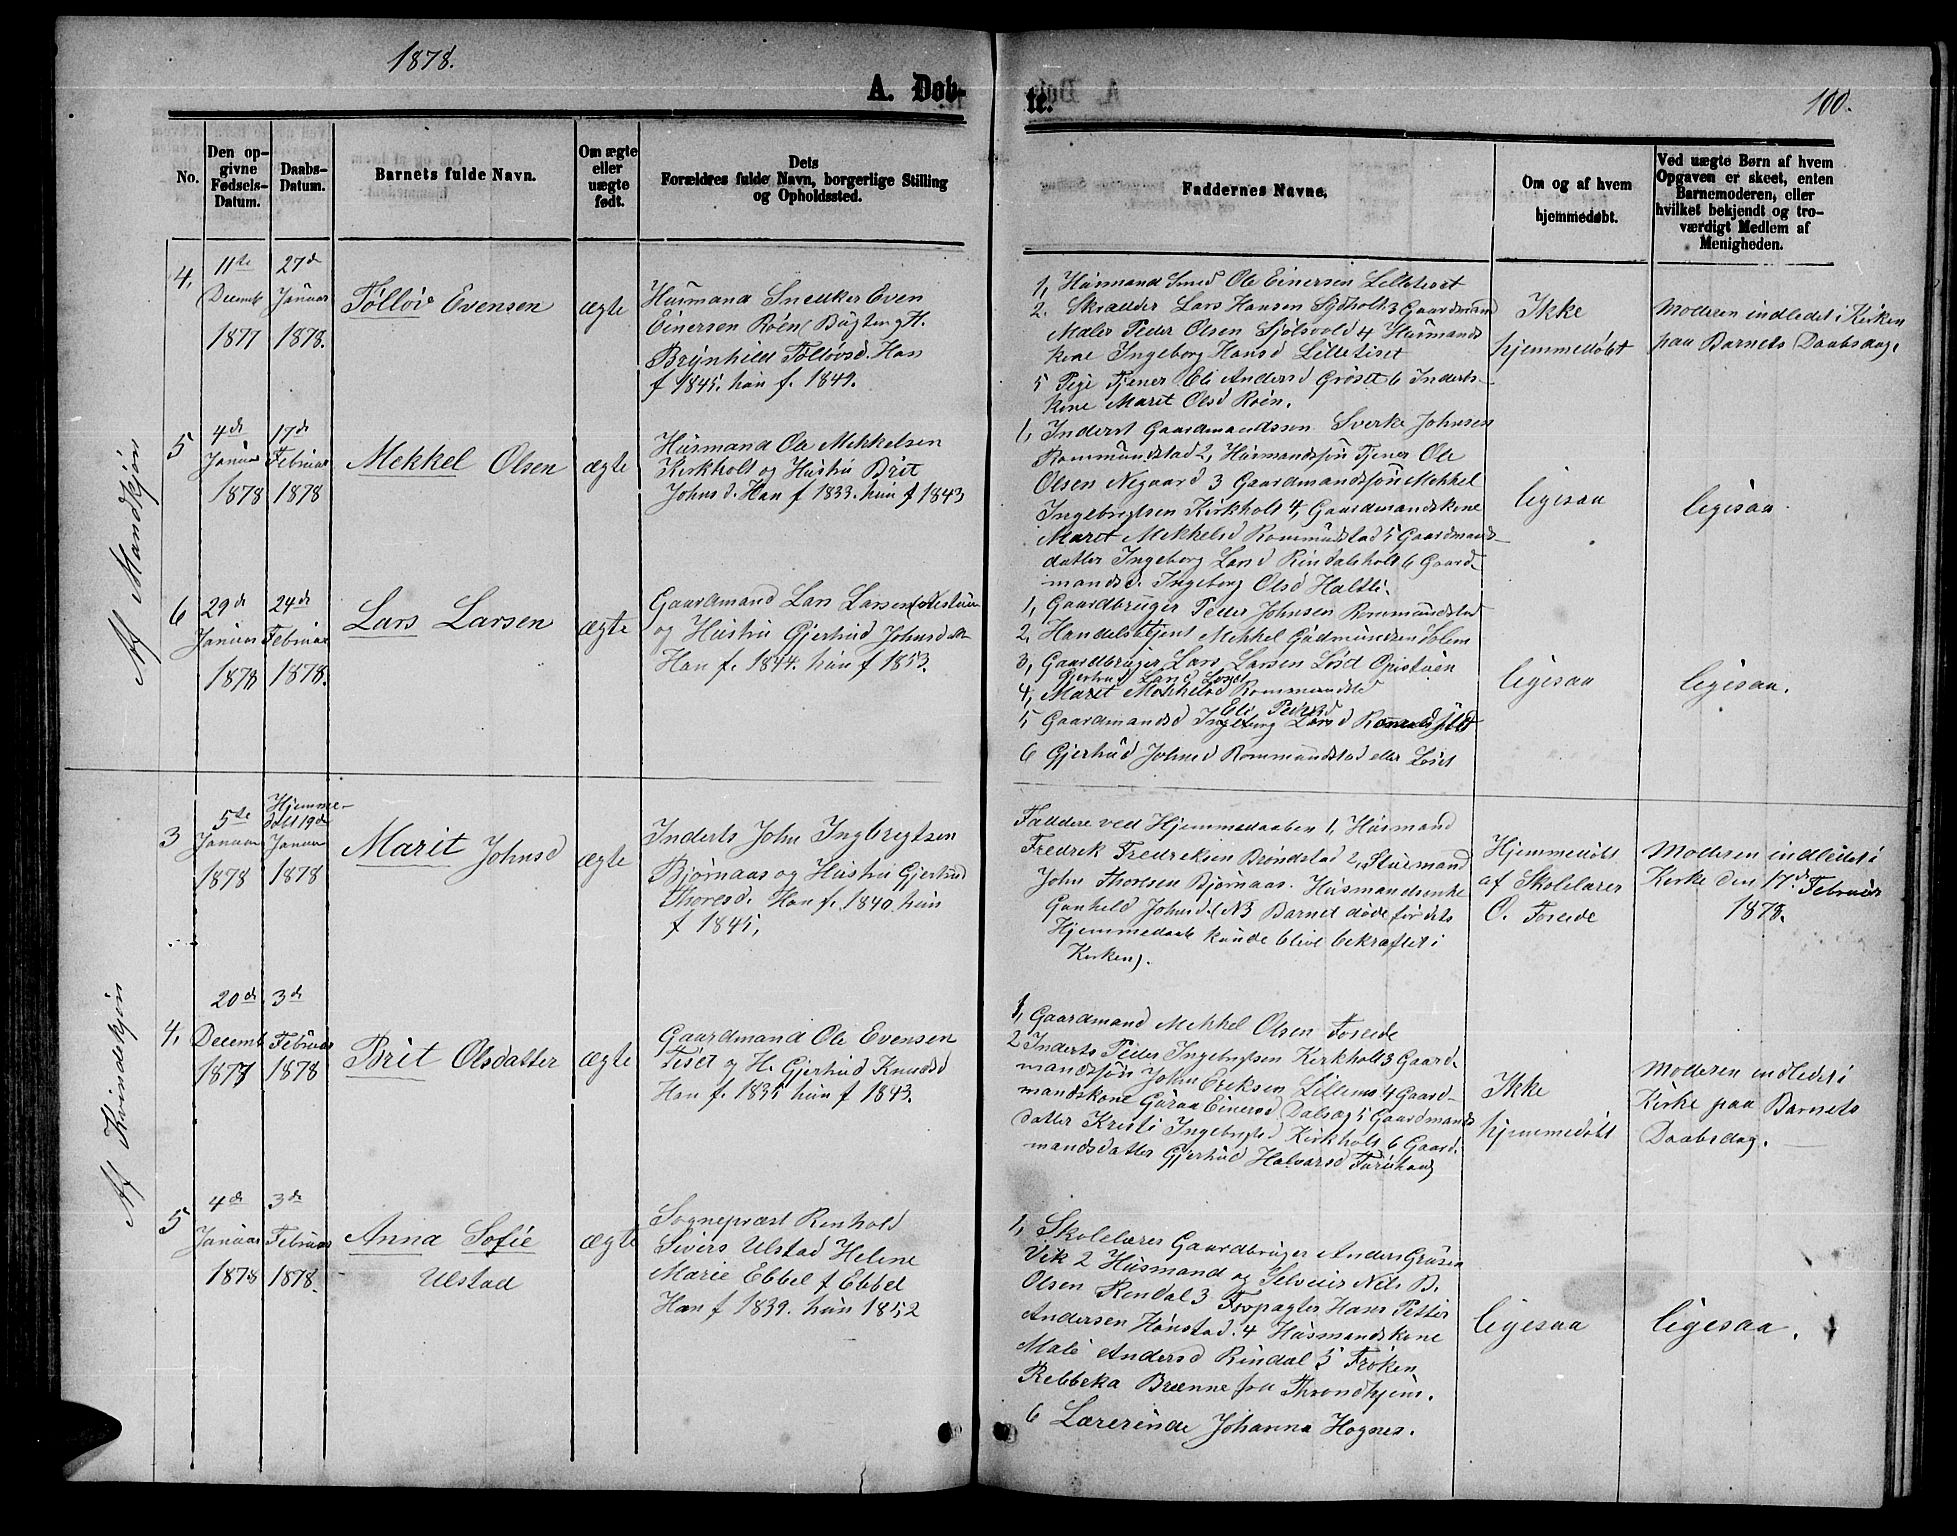 1878.
A. Døb-
te.
100.
No.
Den op-
givne
Fødsels-
Datum.
Daabs-
Datum.
Barnets fulde Navn.
Om ægte
eller
uægte
født.
Dets
Forældres fulde Navn, borgerlige Stilling
og Opholdssted.
Faddernes Navne.
Om og af hvem
hjemmedøbt.
Ved uægte Børn af hvem
Opgaven er skeet, enten
Barnemoderen, eller
hvilket bekjendt og tro-
værdigt Medlem af
Menigheden.
Af Mandkjøn
4,
11te
Decemb
1877
27d
Januar
1878.
Følløv Evensen
ægte
Husmand Snedker Even
Einersen Röen (Bugten og H.
Brynhild Følløvsd. Han
f 1845. hun f. 1849.
1, Husmand Smed Ole Einersen Lilletiset
2. Skrædder Lars Hansen Sydholt 3 Gaardmand
Maler Peder Olsen Sjølsvold 4 Husmands
kone Ingeborg Hansd Lilletiset
5 Pige Tjener Eli Andersd Grøset 6 Inderts-
kone Maret Olsd Röen.
Ikke
hjemmedøbt
Moderen indledet i Kirken
paa Barnets Daabsdag.
5
4de
Januar
1878
17de
Februar
1878
Mekkel Olsen
ægte
Husmand Ole Mekkelsen
Kirkholt og Hustru Brit
Johnsd. Han f 1833. hun f 1843
1, Inderst Gaardmandssøn Sverke Johnsen
Rommundstad 2, Husmandsøn Tjener Ole
Olsen Negaard 3 Gaardmandssøn Mekkel
Ingebrigtsen Kirkholt 4, Gaardmandskone
Maret Mekkelsd Rommundstad 5 Gaardmands-
datter Ingeborg Larsd Rindalsholt 6 Gaard-
mandsd. Ingeborg Olsd Haltli.
ligesaa
ligesaa
6
29de
Januar
1878
24de
Februar
1878.
Lars Larsen
ægte
Gaardmand Lars Larsen
og Hustru Gjertrud Johnsd
Han f. 1844. hun f 1853.
1, Gaardbruger Peder Johnsen Rommundstad
2, Handelsbtjent Mekkel Gudmundsen Solem
3, Gaardbruger Lars Larsen Løset Opistuen
Gjertrud Larsd Løset
4, Maret Mekkelsd Rommundstd
Eli Pedersd
5 Gaardmandsd Ingeborg Larsd
6 Gjertrud Johnsd Rommundstad eller Løset
ligesaa
ligesaa.
Af Kvindekjøn
3
5te
Januar
1878
Hjemme-
døbt 19de
Januar
1878
Marit Johnsd
ægte
Inderts John Ingbregtsen
Bjørnaas og Hustru Gjertrud
Thoresd. Han f. 1840. hun
f 1845,
Faddere ved Hjemmedaaben 1, Husmand
Fredrik Fredreksen Brøndstad 2, Stuemand
John Thoresen Bjørnaas. Husmandsenke
Gunheld Johnsd. (NB Barnet døde før dets
Hjemmedaab kunde blive bekræftet i
Kirken).
Hjemmedøbt
af Skolelærer
O. Foseide
Moderen indledet i
Kirke den 17de Februar
1878.
4,
20de
Decemb
1877
3de
Februar
1878
Brit Olsdatter
ægte
Gaardmand Ole Evensen
Tiset og H. Gjertrud Knudsd
Han f. 1835 hun f 1843.
1, Gaardmand Mekkel Olsen Foseide
2 Inderts Peder Ingebrigtsen Kirkholt 3 Gaard-
mandssøn John Eriksen Lillemo 4 Gaard-
mandskone Guraa Einersd Dalsæg 5 Gaardmands
datter Kristi Ingebrigtsd Kirkholt 6 Gaard-
mandsdatter Gjertrud Halvorsd Furuhaug
Ikke
hjemmedøbt
Moderen indledet i
Kirke paa Barnets
Daabsdag.
5
4de
Januar
1878
3de
Februar
1878.
Anna Sofie
Ulstad
ægte
Sognepræst Renhold
Sivers Ulstad Helene
Marie Ebbel f Ebbel
Han f 1839. hun 1852
1, Skolelærer Gaardbruger Anders
Vik 2 Husmand og Selveier Nils B.
Olsen Rendal 3 Forpagter Hans Petter
Andersen Hønstad. 4 Husmandskone
Male Andersd Rindal 5 Frøken
Rebbeka Brænne fra Throndhjem.
6 Lærerinde Johanna Hognes.
ligesaa
ligesaa.